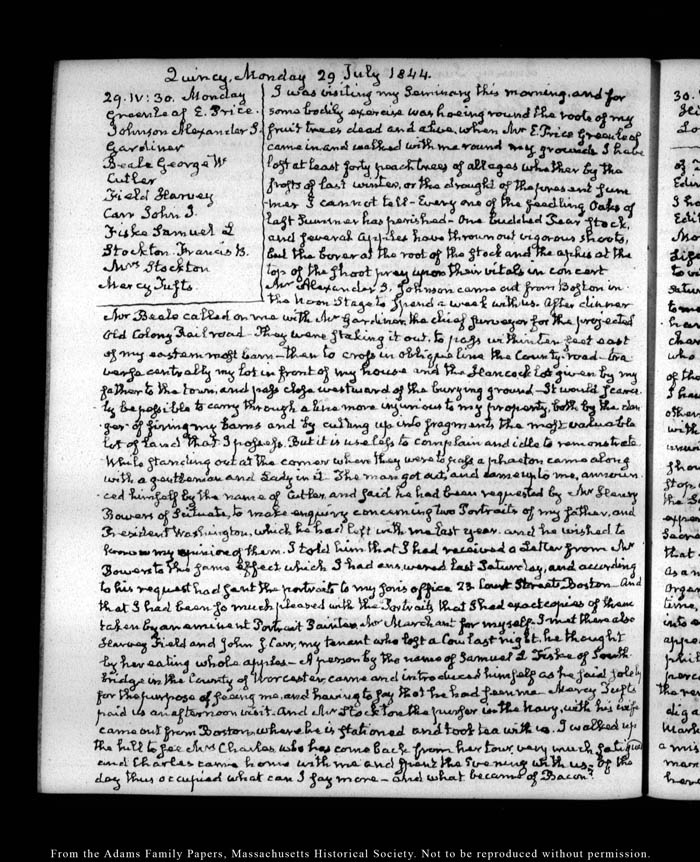 Quincy, Monday 29 July 1844.
29. IV: 30. Monday
Greenleaf E. Price.
Johnson Alexander S.
Gardiner
Beale George W
Cutler
Field Harvey
Carr John J.
Fiske Samuel L
Stockton Francis B.
Mrs Stockton
Mercy Tufts.
I was visiting my Seminary this morning, and for
some bodily exercise was hoeing round the roots of my
fruit trees dead and alive, when Mr E. Price Greenleaf
came in and walked with me round my grounds I have
lost at least forty peach trees of all ages whether by the
frosts of last winter, or the drought of the present Sum
-mer I cannot tell - Every one of the seedling Oaks of
last Summer has perished - One budded Pear Stock,
and several Apples have thrown out vigorous shoots,
but the borer at the root of the stock and the aphis at the
top of the shoot prey upon their vitals in concert
Mr Alexander S. Johnson came out from Boston in
the Noon Stage to spend a week with us. After dinner
Mr Beale called on me with Mr Gardiner, the chief surveyor for the projected
Old Colony Railroad - They were staking it out, to pass within ten feet east
of my easternmost barn - then to cross in oblique line the County road - tra
verse centrally my lot in front of my house and the Hancock lot given by my
father to the town, and pass close westward of the burying ground - It would scarce
ly be possible to carry through a line more injurious to my property, both by the dan
ger of firing my barns and by cutting up into fragments the most valuable
lot of land that I possess. But it is useless to complain and idle to remonstrate
While standing out at the corner where they were to pass a phaeton came along
with a gentleman and Lady in it. The man got out, and came up to me, announ
ced himself by the name of Cutler and said he had been requested by Mr Henry
Bowers of Scituate, to make enquiry concerning two Portraits of my father, and
President Washington, which he had left with me last year. and he wished to
know my opinion of them. I told him that I had received a Letter from Mr
Bowers to the same effect which I had answered last Saturday, and according
to his request had sent the portraits to my son's office 23 Court Street Boston - And
that I had been so much pleased with the Portraits that I had exact copies of them
taken by an eminent Portrait Painter Mr Marchant for myself. I met there also
Harvey Field and John J Carr, my tenant who lost a Cow last night. he thought
by her eating whole apples - A person by the name of Samuel L Fiske of South
bridge in the County of Worcester came and introduced himself as he said solely
for the purpose of seeing me, and having to say that he had seen me - Mercy Tufts
paid us an afternoon visit. And Mr Stockton the purser in the Navy, with his wife
came out from Boston, where he is stationed and took tea with us. I walked up
the hill to see Mrs Charles who has come back from her tour very much fatigued
and Charles came home with me and spent the Evening with us - Of the
day thus occupied what can I say more - and what became of Bacon?
From the Adams Family Papers, Massachusetts Historical Society. Not to be reproduced without permission.